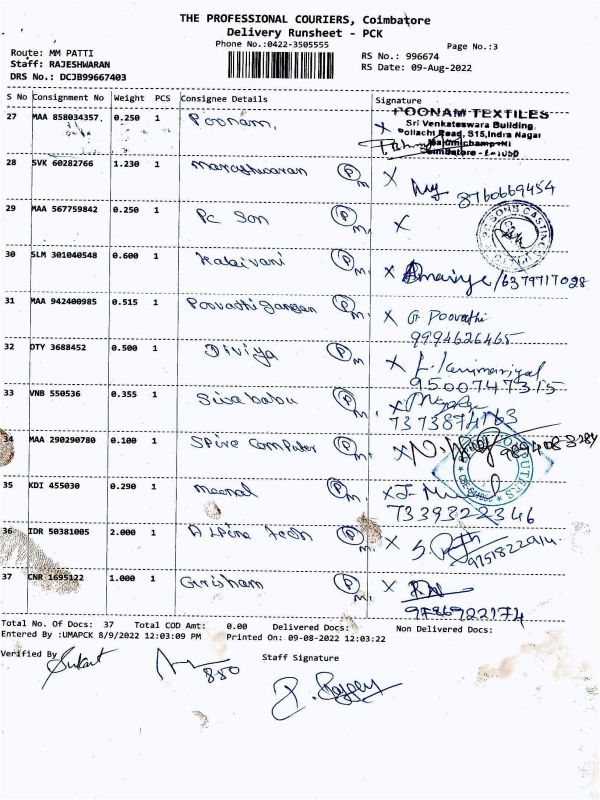 THE PROFESSIONAL COURIERS, Coimbatore
Delivery Runsheet - PCK
Phone No.:0422-3505555
Page No.:3
Route: MM PATTI
Staff: RAJESHWARAN
DRS No.: DCJB99667403
RS No.: 996674
RS Date: 09-Aug-2022
S No Consignment No Weight PCS Consignee Details Signature
27 MAA 858034357. 0.250 1 Poonam. X
POONAM TEXTILES
Sri Venkateswara Building,
Pollachi Road, S15, Indra Nagar
28 SVK 60282766 1.230 1 P M. X 8760669454
29 MAA 567759842 0.250 1 Pc Son P M. X
30 SLM 301040548 0.600 1 Kalaivani P M. X /6379717028
31 MAA 942400985 0.515 1 P M. X G Poovathi
9994626465
32 DTY 3688452 0.500 1 Diviya P M. X
9500747315
33 VNB 550536 0.355 1 Sivababu P M. X
7373874763
34 MAA 290290780 0.100 1 Spire Computer P M. X
COMPUTERS
35 KDI 455030 0.290 1 meenal P M. X
7339322346
36 IDR 50381005 2.000 1 P M. X
37 CNR 1695122 1.000 1 Girisham P M. X
9786922174
Total No. Of Docs: 37 Total COD Amt: 0.00 Delivered Docs: Non Delivered Docs:
Entered By :UMAPCK 8/9/2022 12:03:09 PM Printed On: 09-08-2022 12:03:22
Verified By
850
Staff Signature